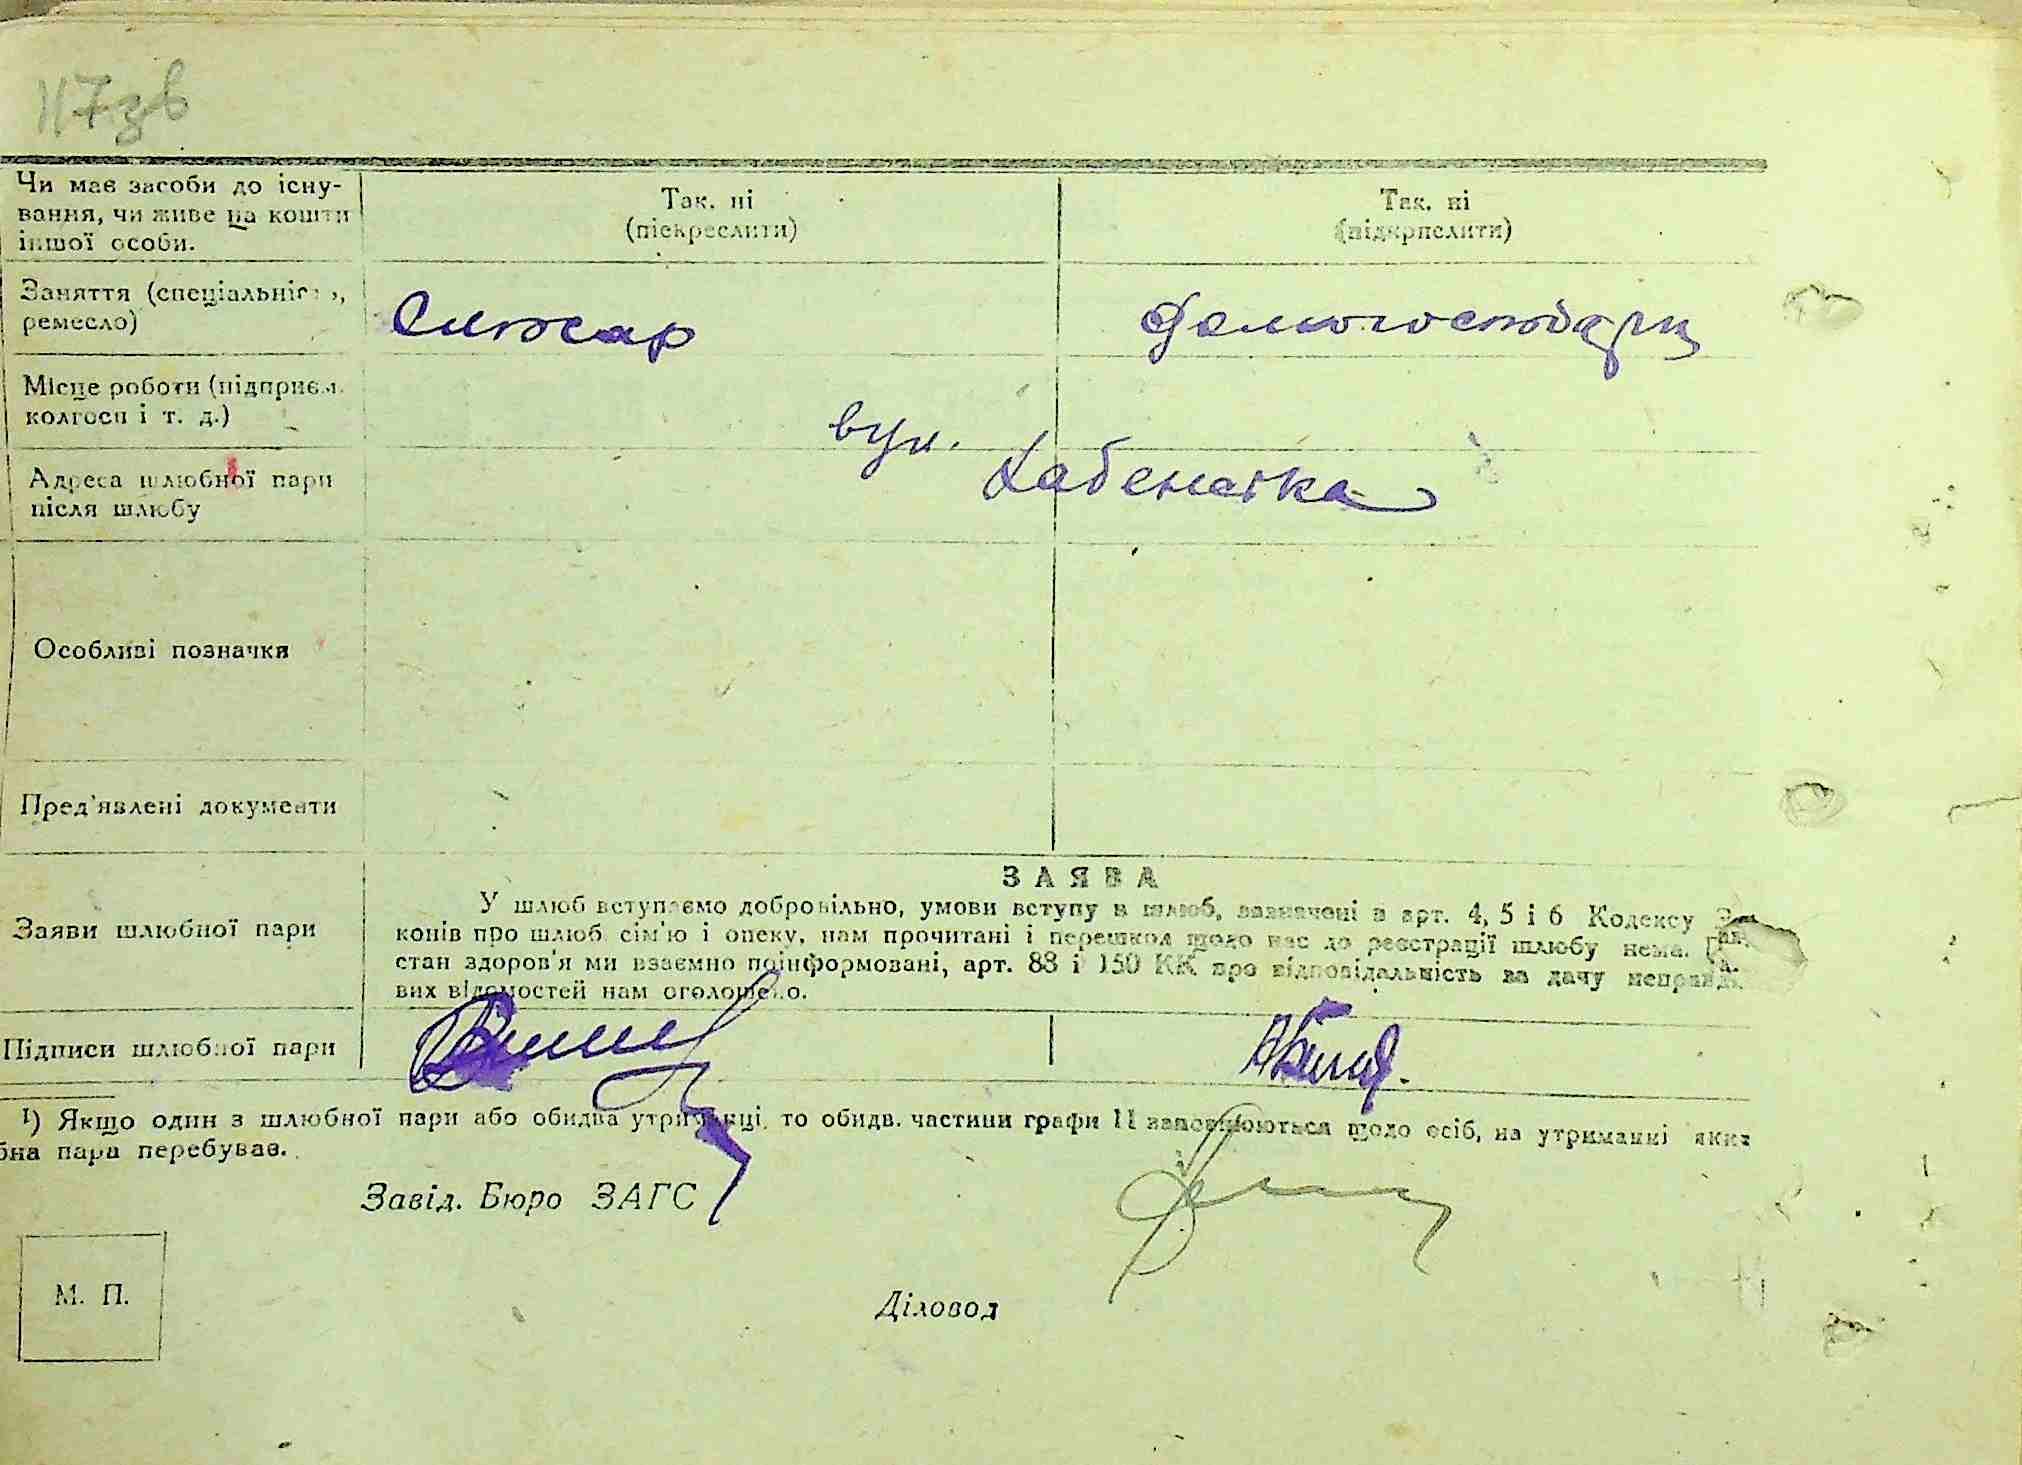 117зв
Чи має засоби до існу-
вання, чи живе на кошти
іншої особи.
Так. ні
(піскреслити)
Так. ні
(підкрпслити)
Заняття (спеціальніс
ремесло)
Слюсар
Місце роботи (підприєм.
колгосп і т. д.)
вул.
Адреса шлюбної пари
після шлюбу
Особливі позначки
Пред'явлені документи
ЗАЯВА
Заяви шлюбної пари
У шлюб вступаємо добровільно, умови вступу в шлюб, зазначені в арт. 4, 5 і 6 Кодексу За-
конів про шлюб. сім'ю і опеку, нам прочитані і перешкод щодо нас до реєстрації шлюбу нема.
стан здоров'я ми взаємно поінформовані, арт. 88 і 150 КК про відповідальність за дачу неправд
вих відомостей нам оголошено.
Підписи шлюбної пари
1) Якщо один з шлюбної пари або обидва утриманці, то обидв. частини графи 11 заповнюються щодо осіб, на утриманні яких
бна пара перебуває.
Завід. Бюро ЗАГС
М. П.
Діловод